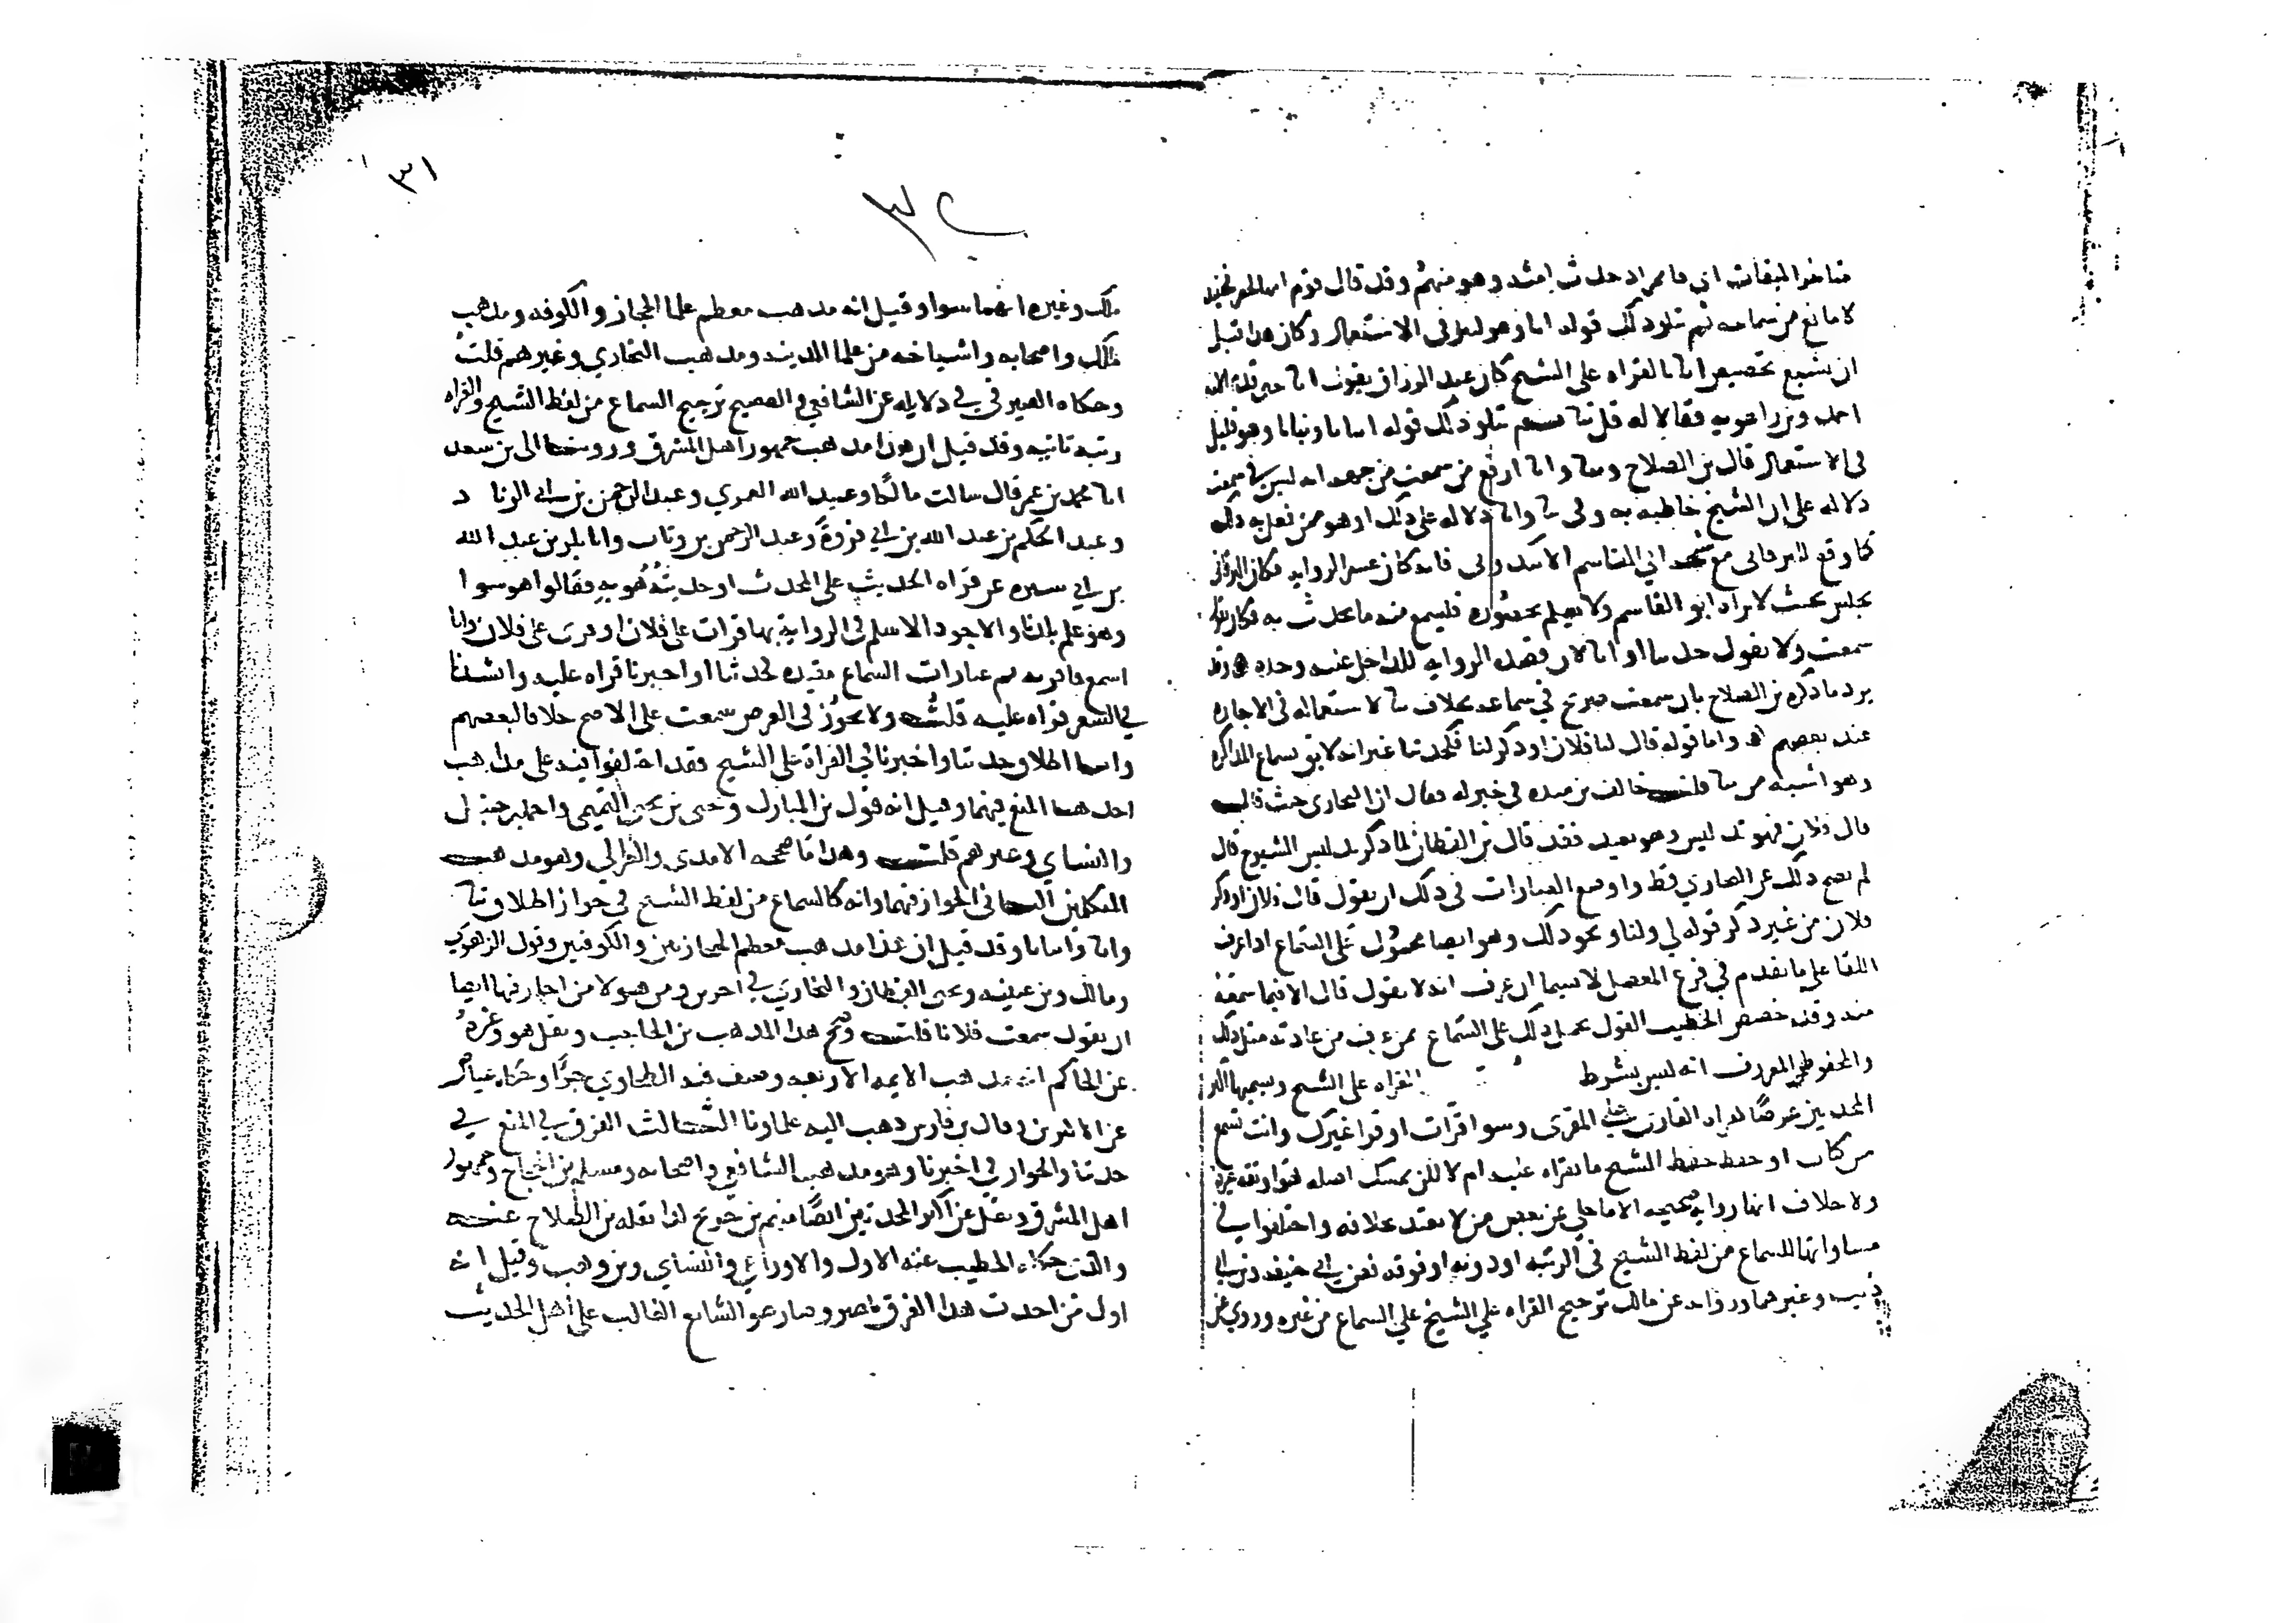 متاخرا لميقات اي فامراد حدث امته وهو منهم وقد قال قوم انه الخضر فحينئذ
لا مانع من سماعه ثم تتلو ذلك قوله انا وهو لغو في الاستعمال وكان هذا قبل
ان يشيع تخصيص انا بالقراه على الشيخ كان عبد الرزاق يقول انا حتى قدم
احمد وبن راهويه فقالا له قل ثنا ثم تتلو ذلك قوله انبانا ونبانا وهو قليل
في الاستعمال قال بن الصلاح وثنا وانا ارفع من سمعت من جهه انه ليس في سمعت
دلاله على ان الشيخ خاطبه به وفي ثنا وانا دلاله على ذلك او هو ممن فعل به ذلك
كما وقع للبرقاني مع شيخه ابي القاسم الابندوني فانه كان عسر الروايه فكان البرقاني
يجلس بحيث لا يراه ابو القاسم ولا يعلم بحضوره فيسمع منه ما يحدث به فكان يقول
سمعت ولا يقول حدثنا او انا لان قصده الروايه للداخل عنده وحده وقد
يرد ما ذكره بن الصلاح بان سمعت صريح في سماعه بخلاف ثنا لاستعماله في الاجازه
عند بعضهم واما قوله قال لنا فلان او ذكر لنا فكحدثنا غير انه لائق بسماع المذاكره
وهو اشبه من ثنا قلت خالف بن منده في خبر له فقال ان البخاري حيث قال
قال فلان فهو تدليس وهو بعيد فقد قال بن القطان لما ذكر تدليس الشيوخ قال
لم يصح ذلك عن البخاري قط واوضع العبارات في ذلك ان يقول قال فلان او ذكر
فلان من غير ذكر قوله لي ولنا ونحو ذلك وهو ايضا محمول على السماع اذا عرف
اللقا على ما تقدم في فرع المعضل لا سيما ان عرف انه لا يقول قال الا فيما سمعه
منه وقد خصص الخطيب القول بحمل ذلك على السماع بمن عرف من عادته مثل ذلك
والمحفوظ المعروف انه ليس بشرط القراه على الشيخ ويسميها اكثر
المحدثين عرضا لان القاري على المقري وسوا قرات او قرا غيرك وانت تسمع
من كتاب او حفظ حفظ الشيخ ما تقراه عليه ام لا لكن يمسك اصله هو او ثقه غيره
ولا خلاف انها روايه صحيحه الا ما حكي عن بعض من لا يعتد بخلافه واختلفوا في
مساواتها للسماع من لفظ الشيخ في الرتبه او دونه او فوقه فعن ابي حنيفه وبن ابي
ذيب وغيرهما وروايه عن مالك ترجيح القراه علي الشيخ علي السماع من غيره وروي عن
٣١
ملك وغيره انهما سوا وقيل انه مذهب معظم علما الحجاز والكوفه ومذهب
ملك واصحابه واشياخه من علما المدينه ومذهب البخاري وغيرهم قلت
وحكاه الصيرفي في دلايله عن الشافعي والصحيح ترجيح السماع من لفظ الشيخ والقراه
رتبه ثانيه وقد قيل ان هذا مذهب جمهور اهل المشرق وروينا الى بن سعد
انا محمد بن عمر قال سالت مالكا وعبد الله العمري وعبد الرحمن بن ابي الزناد
وعبد الحكم بن عبد الله بن ابي فروة وعبد الرحمن بن وثاب وانا بكر بن عبد الله
بن ابي سبره عن قراه الحديث على المحدث او حديثه هو به فقالوا هو سوا
وهو علم بلدنا والاجود الاسلم في الرواية بها قرات على فلان او قرئ على فلان وانا
اسمع فاقر به ثم عبارات السماع مقيده كحدثنا او اخبرنا قراه عليه وانشدنا
في الشعر قراه عليه قلت ولا يجوز في العرض سمعت على الاصح خلافا لبعضهم
واما اطلاق حدثنا واخبرنا في القراة على الشيخ فقد اختلفوا فيه على مذاهب
احدها المنع فيهما وقيل انه قول بن المبارك ويحيى بن يحيى التميمي واحمد بن حنبل
والنساي وغيرهم قلت وهذا ما صححه الامدي والغزالي وهو مذهب
المتكلمين الثاني الجواز فيهما وانه كالسماع من لفظ الشيخ في جواز اطلاق ثنا
وانا وانبانا وقد قيل ان هذا مذهب معظم الحجازيين والكوفيين وقول الزهري
ومالك وبن عيينه ويحيى القطان والبخاري في اخرين ومن هولا من اجاز فيها ايضا
ان يقول سمعت فلانا قلت وصحح هذا المذهب بن الحاجب ونقل هو وغيره
عن الحاكم انه مذهب الايمه الاربعه وصنف فيه الطحاوي جزا وحكاه عياض
عن الاكثرين وقال بن فارس ذهب اليه علماونا الثالث الفرق في المنع في
حدثنا والجواز في اخبرنا وهو مذهب الشافعي واصحابه ومسلم بن الحجاج وجمهور
اهل المشرق ونقل عن اكثر المحدثين ايضا منهم بن جريج كذا نقله بن الصلاح عنه
والذي حكاه الخطيب عنه الاول والاوزاعي والنساي وبن وهب وقيل انه
اول من احدث هذا الفرق بمصر وصار هو الشايع الغالب على اهل الحديث